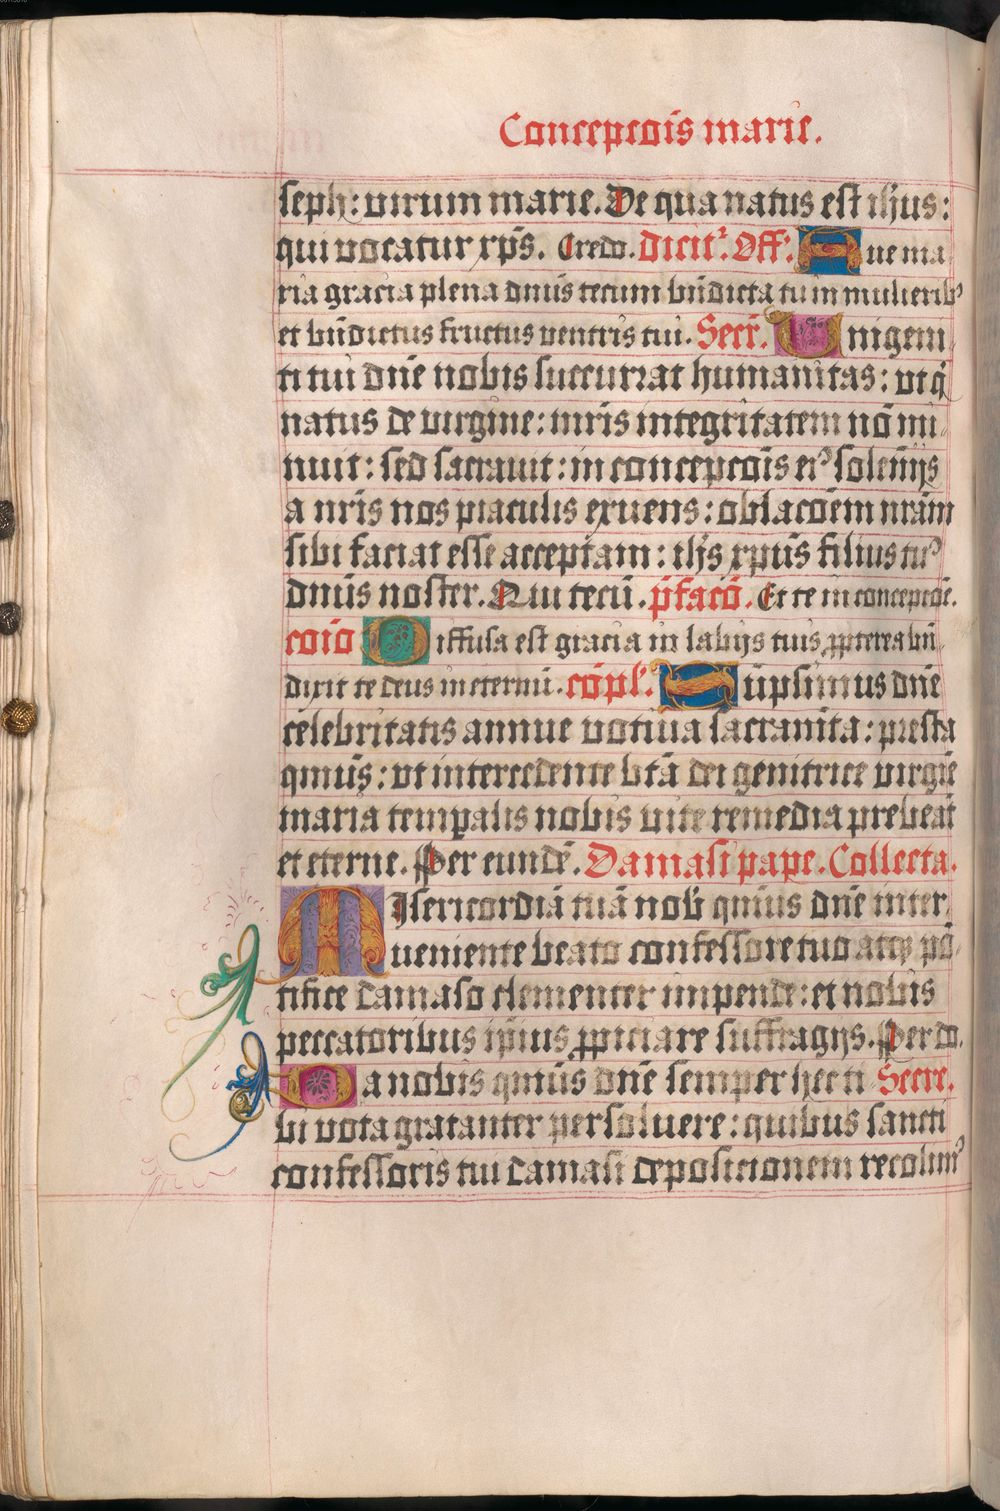 Concepcōis marie.
seph: virum marie. De qua natus est ih̄us:
qui vocatur xp̄s. Credo. dicit᷑. Off᷑. Aue ma
ria gracia plena dn̄us tecum bn̄dicta tu in mulierib⁹
et bn̄dictus fructus ventris tui. Secr̄. Unigeni
ti tui dn̄e nobis succurrat humanitas: vt q̄
natus de virgine: mr̄is integritatem nō mi
nuit: sed sacrauit: in concepcōis ei⁹ solēnijs
a nr̄is nos piaculis exuens: oblacōem nr̄am
sibi faciat esse acceptam: ih̄s xp̄us filius tu⁹
dn̄us noster. Qui tecū. p̄facō. Et te in concepcōe.
cōio Diffusa est gracia in labijs tuis ꝓpterea bn̄
dixit te deus in eternū. cōpl̄. Sūpsimus dn̄e
celebritatis annue votiua sacramēta: presta
qm̄us: vt intercedente btā dei genitrice virgīe
maria temꝑalis nobis vite remedia prebeāt
et eterne. Per eundē. Damasi pape. Collecta.
Misericordiā tuā nob̄ qm̄us dn̄e inter
ueniente beato confessore tuo atqꝫ pō
tifice damaso clementer impende: et nobis
peccatoribus ip̄ius ꝓpiciare suffragijs. Per do.
Da nobis qm̄us dn̄e semper hec ti Secre.
bi vota gratanter persoluere: quibus sancti
confessoris tui damasi deposicionem recolim⁹